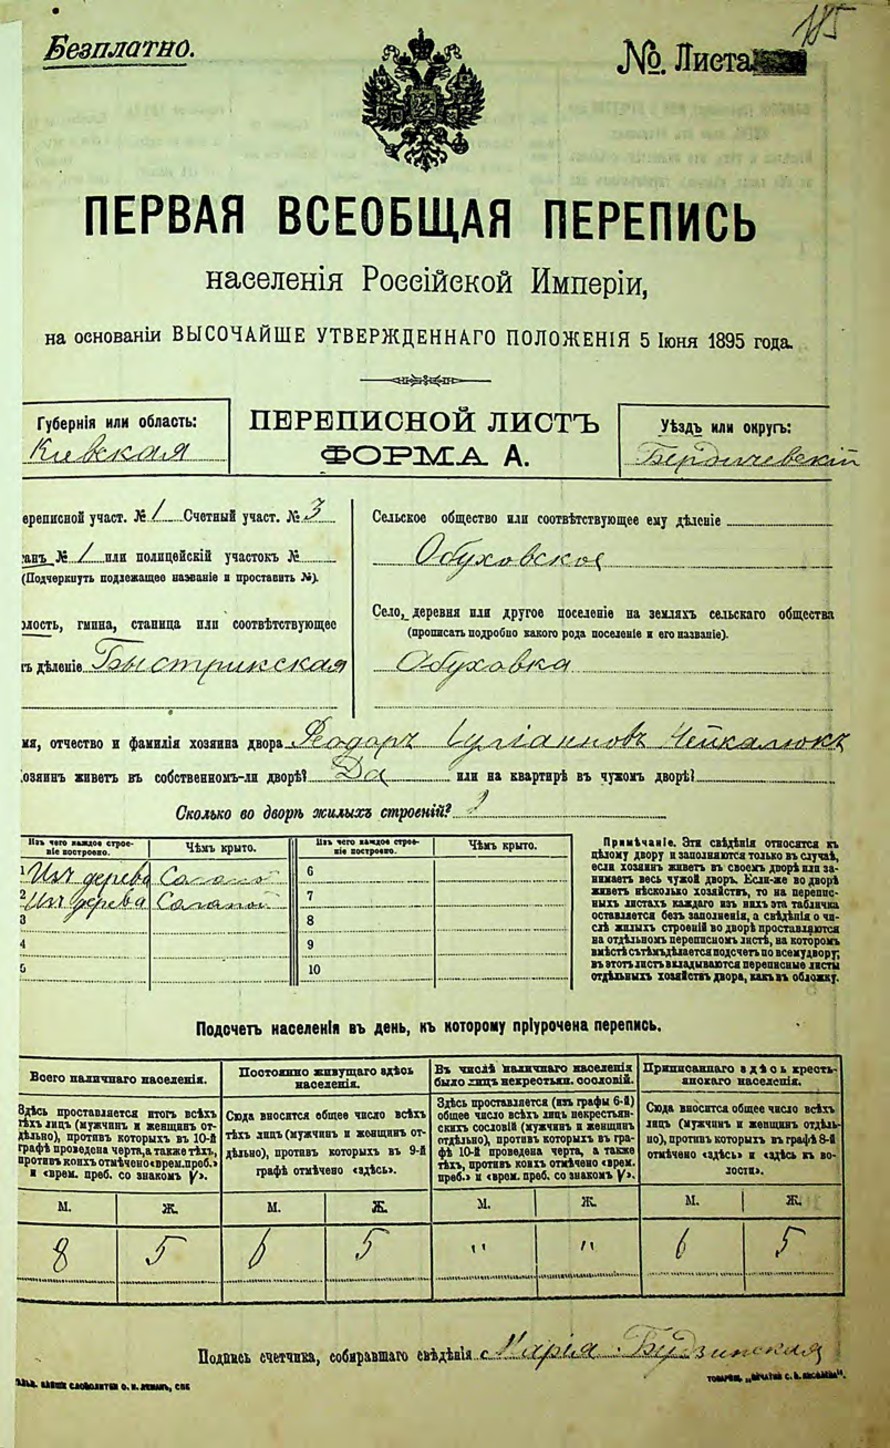 Безплатно.
№ Листа 185
ПЕРВАЯ ВСЕОБЩАЯ ПЕРЕПИСЬ
населенія Россійской Имперіи,
на основаніи ВЫСОЧАЙШЕ УТВЕРЖДЕННАГО ПОЛОЖЕНІЯ 5 Іюня 1895 года.
Губернія или область:
Киевская
ПЕРЕПИСНОЙ ЛИСТЪ
ФОРМА А.
Уѣздъ или округъ:
Бердичевскій
ереписной участ. № 1 Счетный участ. № 3
анъ № 1 или полицейскій участокъ №
(Подчеркнуть подлежащее названіе и проставить №).
лость, гмина, станица или соотвѣтствующее
ъ дѣленіе Быстрикская
Сельское общество или соотвѣтствующее ему дѣленіе
Обуховское
Село, деревня или другое поселеніе на земляхъ сельскаго общества
(прописать подробно какого рода поселеніе и его названіе).
Обуховка
мя, отчество и фамилія хозяина двора Феодоръ
озяинъ живетъ въ собственномъ-ли дворѣ? Да или на квартирѣ въ чужомъ дворѣ?
Сколько во дворѣ жилыхъ строеній? 2
Изъ чего каждое строе-
ніе построено.
Чѣмъ крыто.
Изъ чего каждое строе-
ніе построено.
Чѣмъ крыто.
1 Изъ дерева Соломой 6
2 Изъ дерева Соломой 7
3 8
4 9
5 10
Примѣчаніе. Эти свѣдѣнія относятся къ
цѣлому двору и заполняются только въ случаѣ,
если хозяинъ живетъ въ своемъ дворѣ или за-
нимаетъ весь чужой дворъ. Если-же во дворѣ
живетъ нѣсколько хозяйствъ, то на перепис-
ныхъ листахъ каждаго изъ нихъ эта табличка
оставляется безъ заполненія, а свѣдѣнія о чи-
слѣ жилыхъ строеній во дворѣ проставляются
на отдѣльномъ переписномъ листѣ, на которомъ
вмѣстѣ съ тѣмъ дѣлается подсчетъ по всему двору;
въ этотъ листъ вкладываются переписные листы
отдѣльныхъ хозяйствъ двора, какъ въ обложку.
Подсчетъ населенія въ день, къ которому пріурочена перепись.
Всего наличнаго населенія.
Здѣсь проставляется итогъ всѣхъ
тѣхъ лицъ (мужчинъ и женщинъ от-
дѣльно), противъ которыхъ въ 10-й
графѣ проведена черта, а также тѣхъ,
противъ коихъ отмѣчено «врем. преб.»
и «врем. преб. со знакомъ V».
Постоянно живущаго здѣсь
населенія.
Сюда вносится общее число всѣхъ
тѣхъ лицъ (мужчинъ и женщинъ от-
дѣльно), противъ которыхъ въ 9-й
графѣ отмѣчено «здѣсь».
Въ числѣ наличнаго населенія
было лицъ некрестьян. сословій.
Здѣсь проставляется (изъ графы 6-й)
общее число всѣхъ лицъ некрестьян-
скихъ сословій (мужчинъ и женщинъ
отдѣльно), противъ которыхъ въ гра-
фѣ 10-й проведена черта, а также
тѣхъ, противъ коихъ отмѣчено «врем.
преб.» и «врем. преб. со знакомъ V».
Приписаннаго здѣсь кресть-
янскаго населенія.
Сюда вносится общее число всѣхъ
лицъ (мужчинъ и женщинъ отдѣль-
но), противъ которыхъ въ графѣ 8-й
отмѣчено «здѣсь» и «здѣсь къ во-
лости».
М. Ж. М. Ж. М. Ж. М. Ж.
8 5 6 5 " " 6 5
Подпись счетчика, собиравшаго свѣдѣнія Марія Будзинская